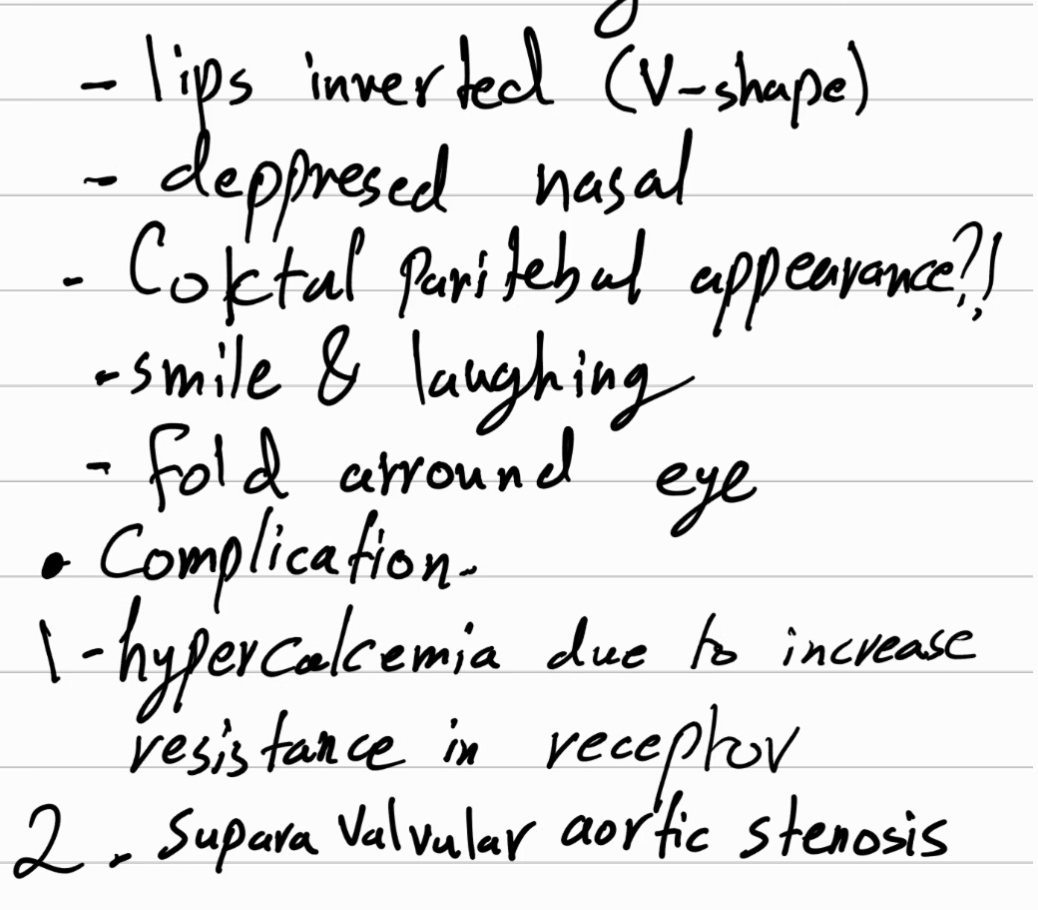 - lips inverted (V-shape)
- deppresed nasal
- Coktal Paritebal appearance?!
- smile & laughing
- fold arround eye
• Complication-
1- hypercalcemia due to increase
resistance in receptor
2- Supara Valvular aortic stenosis